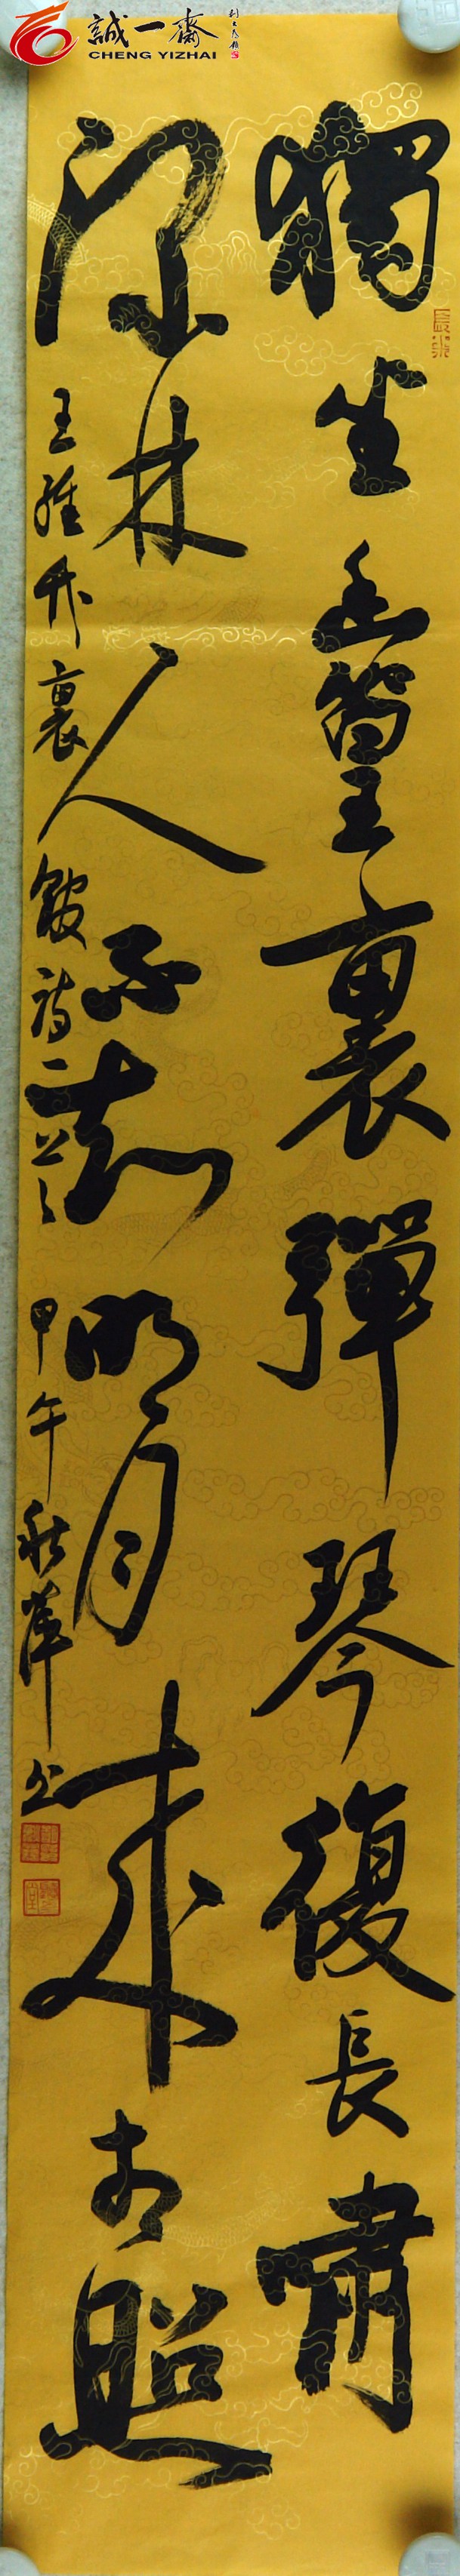 誠一齋
CHENG YIZHAI
獨坐幽篁裏彈琴復長嘯
深林人不知明月來相照
王維竹裏館詩一首
甲午秋萍书